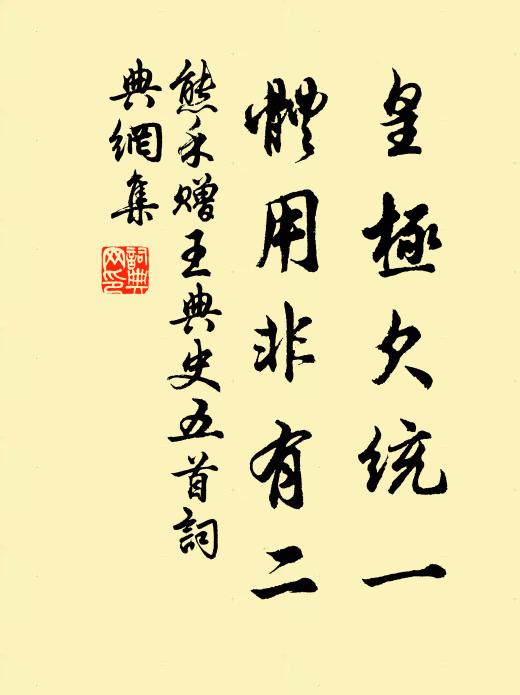 皇極欠統一
體用非有二
熊禾贈王典史五首詞
典網集
詞典網印